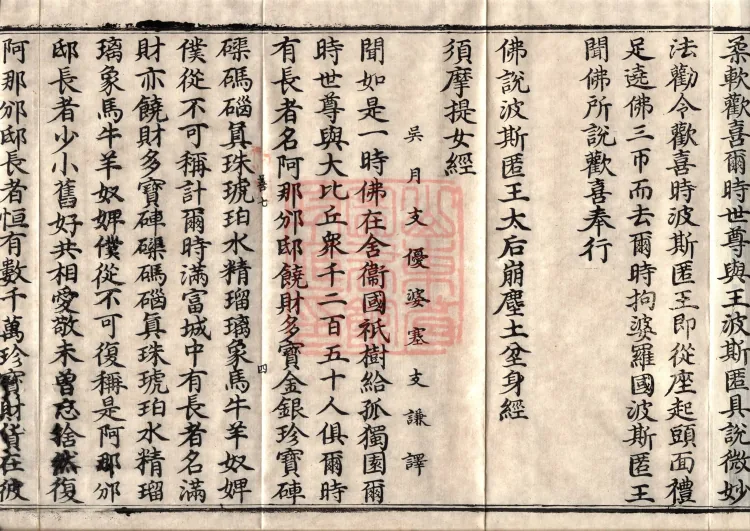 柔軟歡喜爾時世尊與王波斯匿具說微妙
法勸令歡喜時波斯匿王即從座起頭面禮
足遶佛三帀而去爾時拘婆羅國波斯匿王
聞佛所說歡喜奉行
佛說波斯匿王太后崩塵土坌身經
須摩提女經
吳月支優婆塞支謙譯
聞如是一時佛在舍衞國祇樹給孤獨園爾
時世尊與大比丘衆千二百五十人俱爾時
有長者名阿那邠邸饒財多寶金銀珍寶硨
磲碼碯真珠琥珀水精瑠璃象馬牛羊奴婢
僕從不可稱計爾時滿富城中有長者名滿
財亦饒財多寶硨磲碼碯真珠琥珀水精瑠
璃象馬牛羊奴婢僕從不可復稱是阿那邠
邸長者少小舊好共相愛敬未曾忘捨然復
阿那邠邸長者恒有數千萬珍寶財貨在彼
四